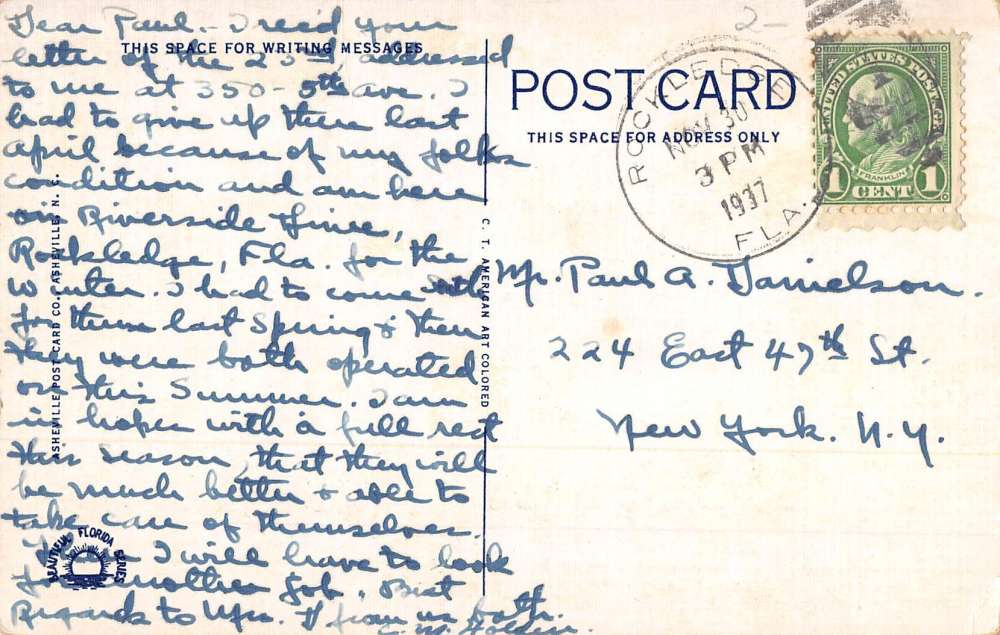 Dear Paul - I rec'd your
THIS SPACE FOR WRITING MESSAGES
letter of the 23rd, addressed
to me at 350 - 5th ave. I
had to give up there last
April because of my folks
condition and am here
on Riverside Drive,
Rockledge, Fla. for the
winter. I had to come South
for them last Spring & then
they were both operated
on this Summer. I am
in hopes with a full rest
this season, that they will
be much better & able to
take care of themselves.
I will have to look
for another job. Best
Regards to Mrs. D from us both.
C. W. Holden.
BEAUTIFUL FLORIDA SERIES
ASHEVILLE POST CARD CO., ASHEVILLE, N. C.
C. T. AMERICAN ART COLORED
2-
POST CARD
THIS SPACE FOR ADDRESS ONLY
ROCKLEDGE
NOV 30
3 PM
1937
FLA.
UNITED STATES POSTAGE
FRANKLIN
1 CENT 1
Mr. Paul A. Danielson.
224 East 47th St.
New York. N.Y.